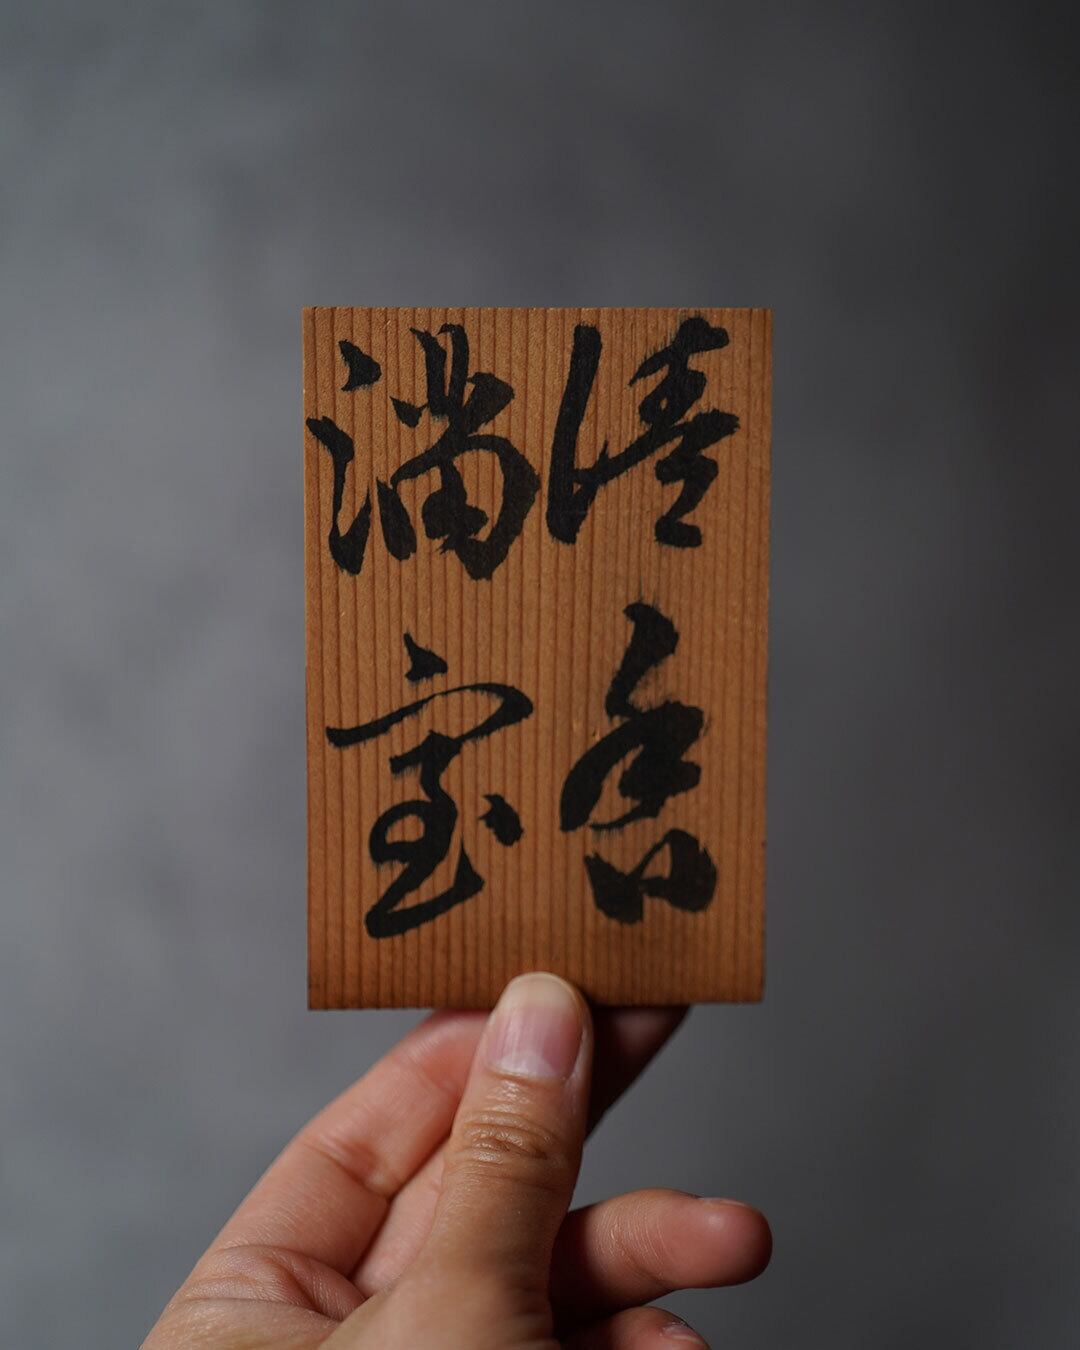 清香
満室